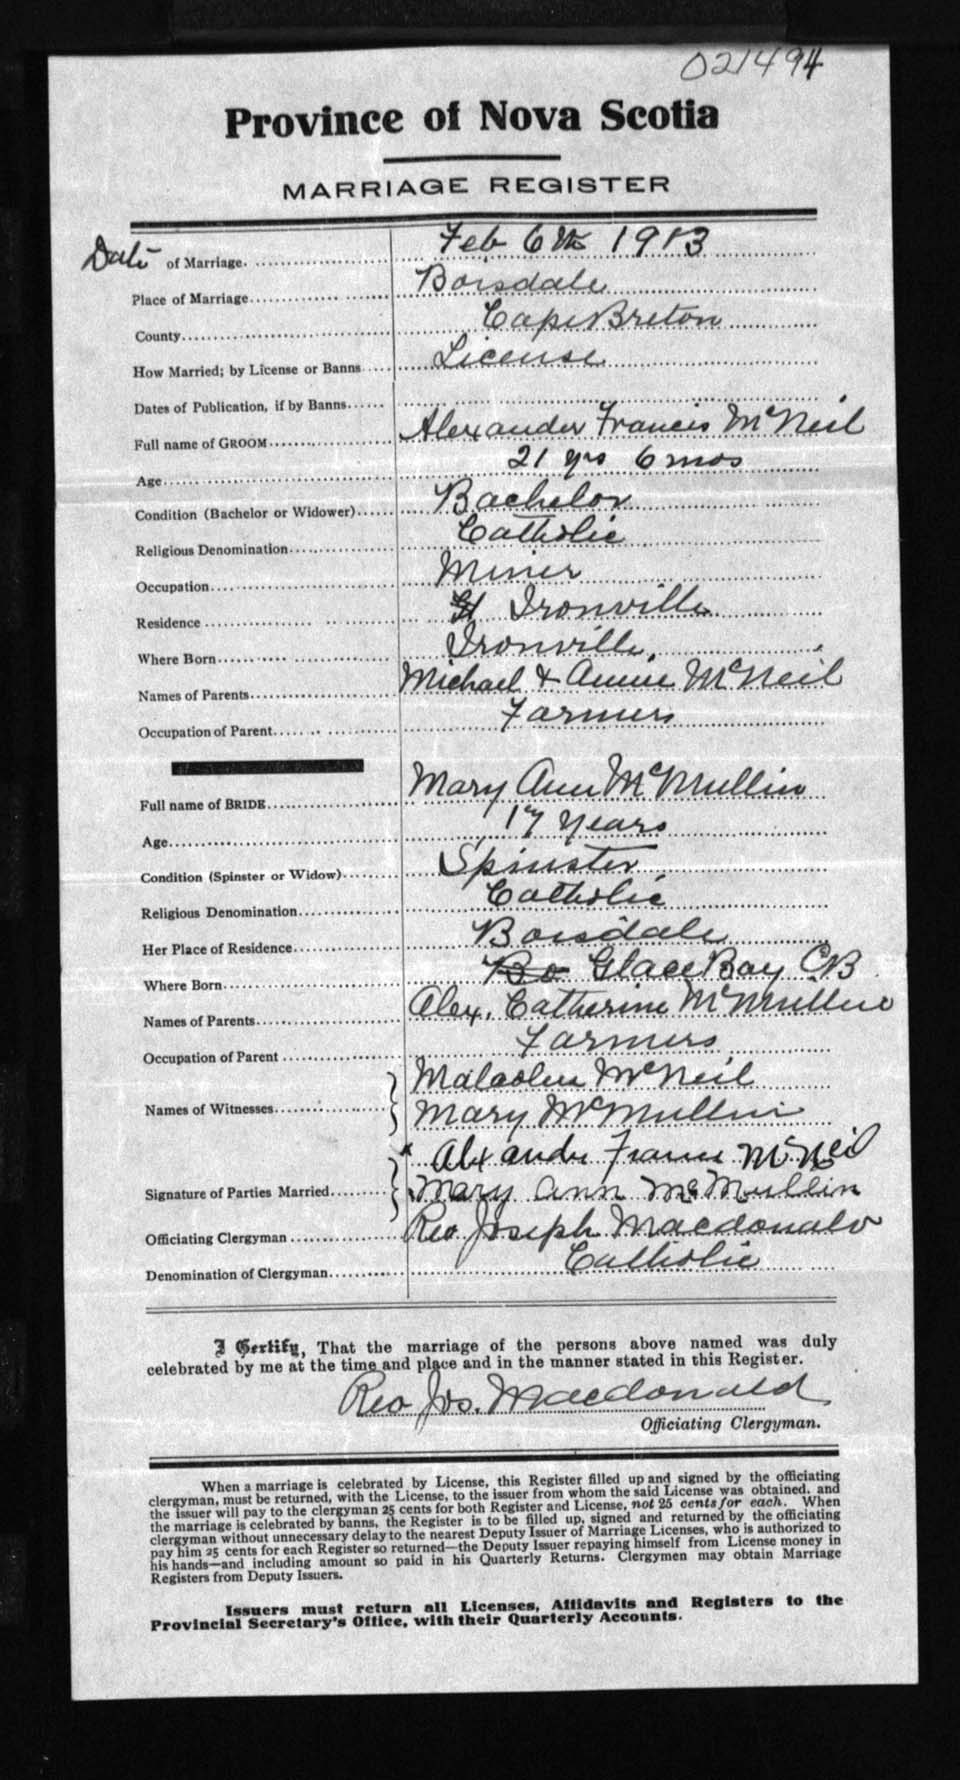 021494
Province of Nova Scotia
MARRIAGE REGISTER
Date of Marriage. Feb 6th 1913
Place of Marriage Boisdale
County Cape Breton
How Married; by License or Banns License
Dates of Publication, if by Banns
Full name of GROOM Alexander Francis McNeil
Age 21 yrs 6 mos
Condition (Bachelor or Widower) Bachelor
Religious Denomination Catholic
Occupation Miner
Residence Ironville
Where Born Ironville,
Names of Parents Michael & Annie McNeil
Occupation of Parent Farmers
Full name of BRIDE Mary Ann McMullin
Age 17 years
Condition (Spinster or Widow) Spinster
Religious Denomination Catholic
Her Place of Residence Boisdale
Where Born Bo Glace Bay CB
Names of Parents Alex. Catherine McMullin
Occupation of Parent Farmers
Names of Witnesses Malcolm McNeil
Mary McMullin
Signature of Parties Married x Alexander Francis McNeil
Mary Ann McMullin
Officiating Clergyman Rev Joseph Macdonald
Denomination of Clergyman Catholic
I Certify, That the marriage of the persons above named was duly
celebrated by me at the time and place and in the manner stated in this Register.
Rev Jos. Macdonald
Officiating Clergyman.
When a marriage is celebrated by License, this Register filled up and signed by the officiating
clergyman, must be returned, with the License, to the issuer from whom the said License was obtained, and
the issuer will pay to the clergyman 25 cents for both Register and License, not 25 cents for each. When
the marriage is celebrated by banns, the Register is to be filled up, signed and returned by the officiating
clergyman without unnecessary delay to the nearest Deputy Issuer of Marriage Licenses, who is authorized to
pay him 25 cents for each Register so returned—the Deputy Issuer repaying himself from License money in
his hands—and including amount so paid in his Quarterly Returns. Clergymen may obtain Marriage
Registers from Deputy Issuers.
Issuers must return all Licenses, Affidavits and Registers to the
Provincial Secretary's Office, with their Quarterly Accounts.